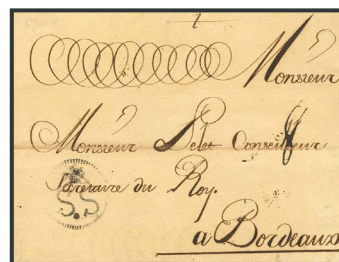 Monsieur
Monsieur Pelet Conseilleur
Secretaire du Roy.
S.S
a Bordeaux